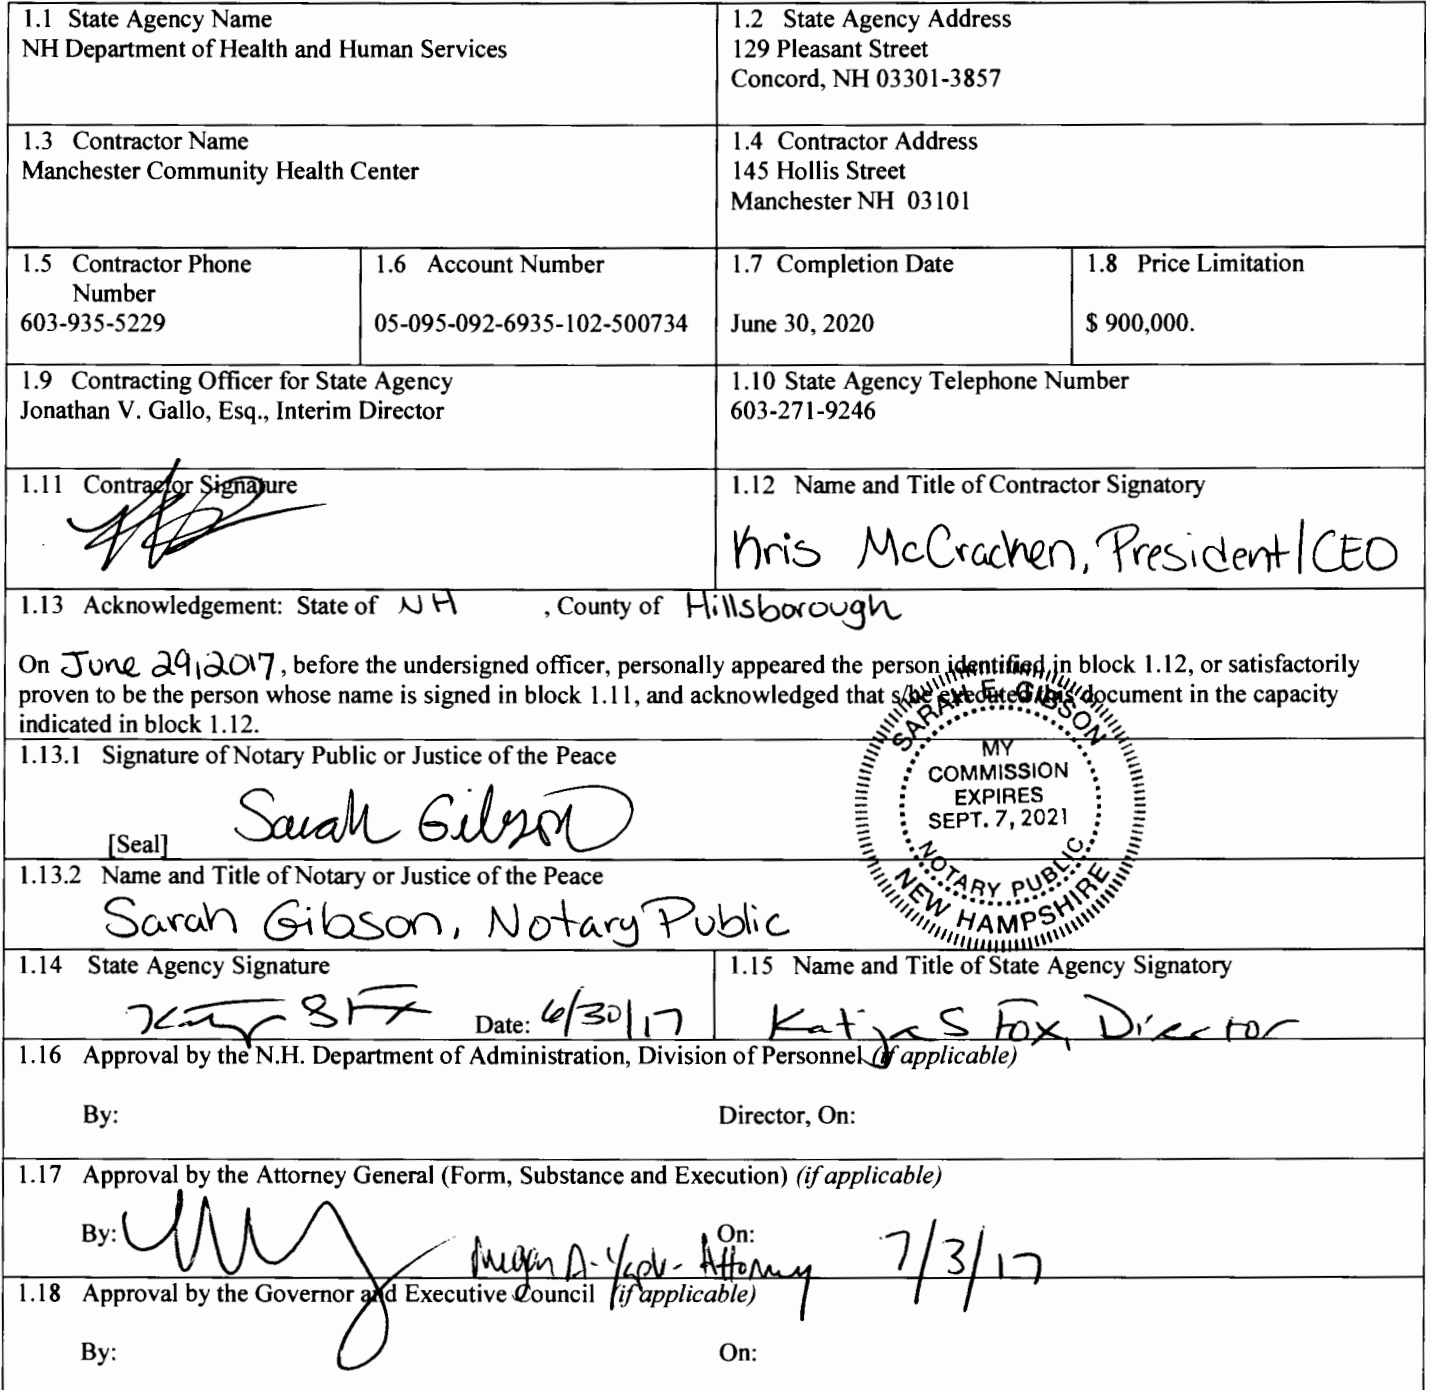 1.1 State Agency Name
NH Department of Health and Human Services
1.2 State Agency Address
129 Pleasant Street
Concord, NH 03301-3857
1.3 Contractor Name
Manchester Community Health Center
1.4 Contractor Address
145 Hollis Street
Manchester NH 03101
1.5 Contractor Phone
Number
603-935-5229
1.6 Account Number
05-095-092-6935-102-500734
1.7 Completion Date
June 30, 2020
1.8 Price Limitation
$ 900,000.
1.9 Contracting Officer for State Agency
Jonathan V. Gallo, Esq., Interim Director
1.10 State Agency Telephone Number
603-271-9246
1.11 Contractor Signature
1.12 Name and Title of Contractor Signatory
Kris McCracken, President/CEO
1.13 Acknowledgement: State of NH , County of Hillsborough
On June 29, 2017, before the undersigned officer, personally appeared the person identified in block 1.12, or satisfactorily
proven to be the person whose name is signed in block 1.11, and acknowledged that s/he executed this document in the capacity
indicated in block 1.12.
SARAH E. GIBSON
MY
COMMISSION
EXPIRES
SEPT. 7, 2021
NOTARY PUBLIC
NEW HAMPSHIRE
1.13.1 Signature of Notary Public or Justice of the Peace
Sarah Gibson
[Seal]
1.13.2 Name and Title of Notary or Justice of the Peace
Sarah Gibson, Notary Public
1.14 State Agency Signature
Date: 6/30/17
1.15 Name and Title of State Agency Signatory
Katja S Fox, Director
1.16 Approval by the N.H. Department of Administration, Division of Personnel (if applicable)
By:
Director, On:
1.17 Approval by the Attorney General (Form, Substance and Execution) (if applicable)
By: Megan A. - Attorney
On: 7/3/17
1.18 Approval by the Governor and Executive Council (if applicable)
By:
On: